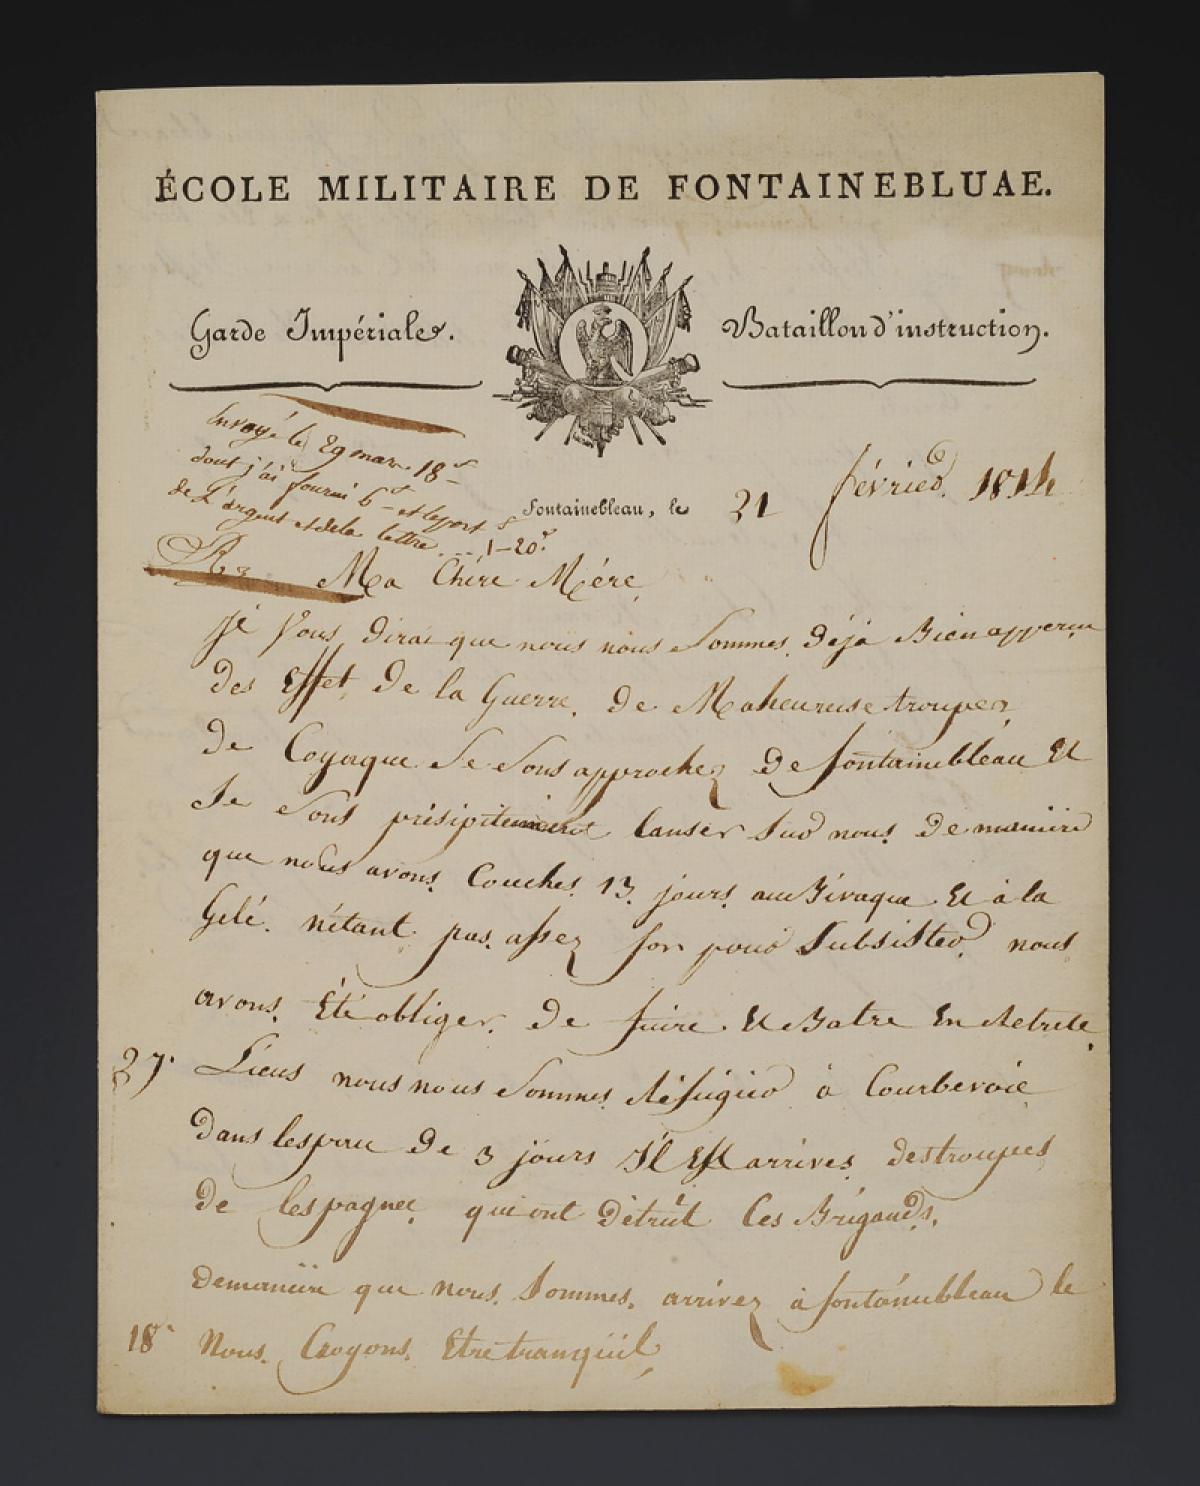 ÉCOLE MILITAIRE DE FONTAINEBLUAE.
Garde Impériale.
Bataillon d'instruction.
Envoyé le 29 mars 18 f
dont j'ai fourni 6 f et le port
de L'argent et de la lettre ... 1-20 c
Fontainebleau, le 21 févried. 1814
Ma Chère Mère,
Je Vous dirai que nous nous Sommes déja Bien apperçu
des Effet de la Guerre. de Maheureuse troupes
de Cosaque Se Sons approchez de fontainebleau Et
Se Sons présipitement lanser Sud nous de manière
que nous avons Couches 13 jours au Bivaque Et à la
Gelé. n'étant pas assez for pour Subsister nous
avons Été obliger de fuire Et Batre En Retrete
27. Lieus nous nous Sommes Réfugied à Courbevoie
dans lespace de 3 jours Il Est arrives des troupes
de lespagne qui ont détruit Ces Brigands.
demanière que nous Sommes arrivez à fontainebleau le
18. Nous Croyons Etre tranquil,